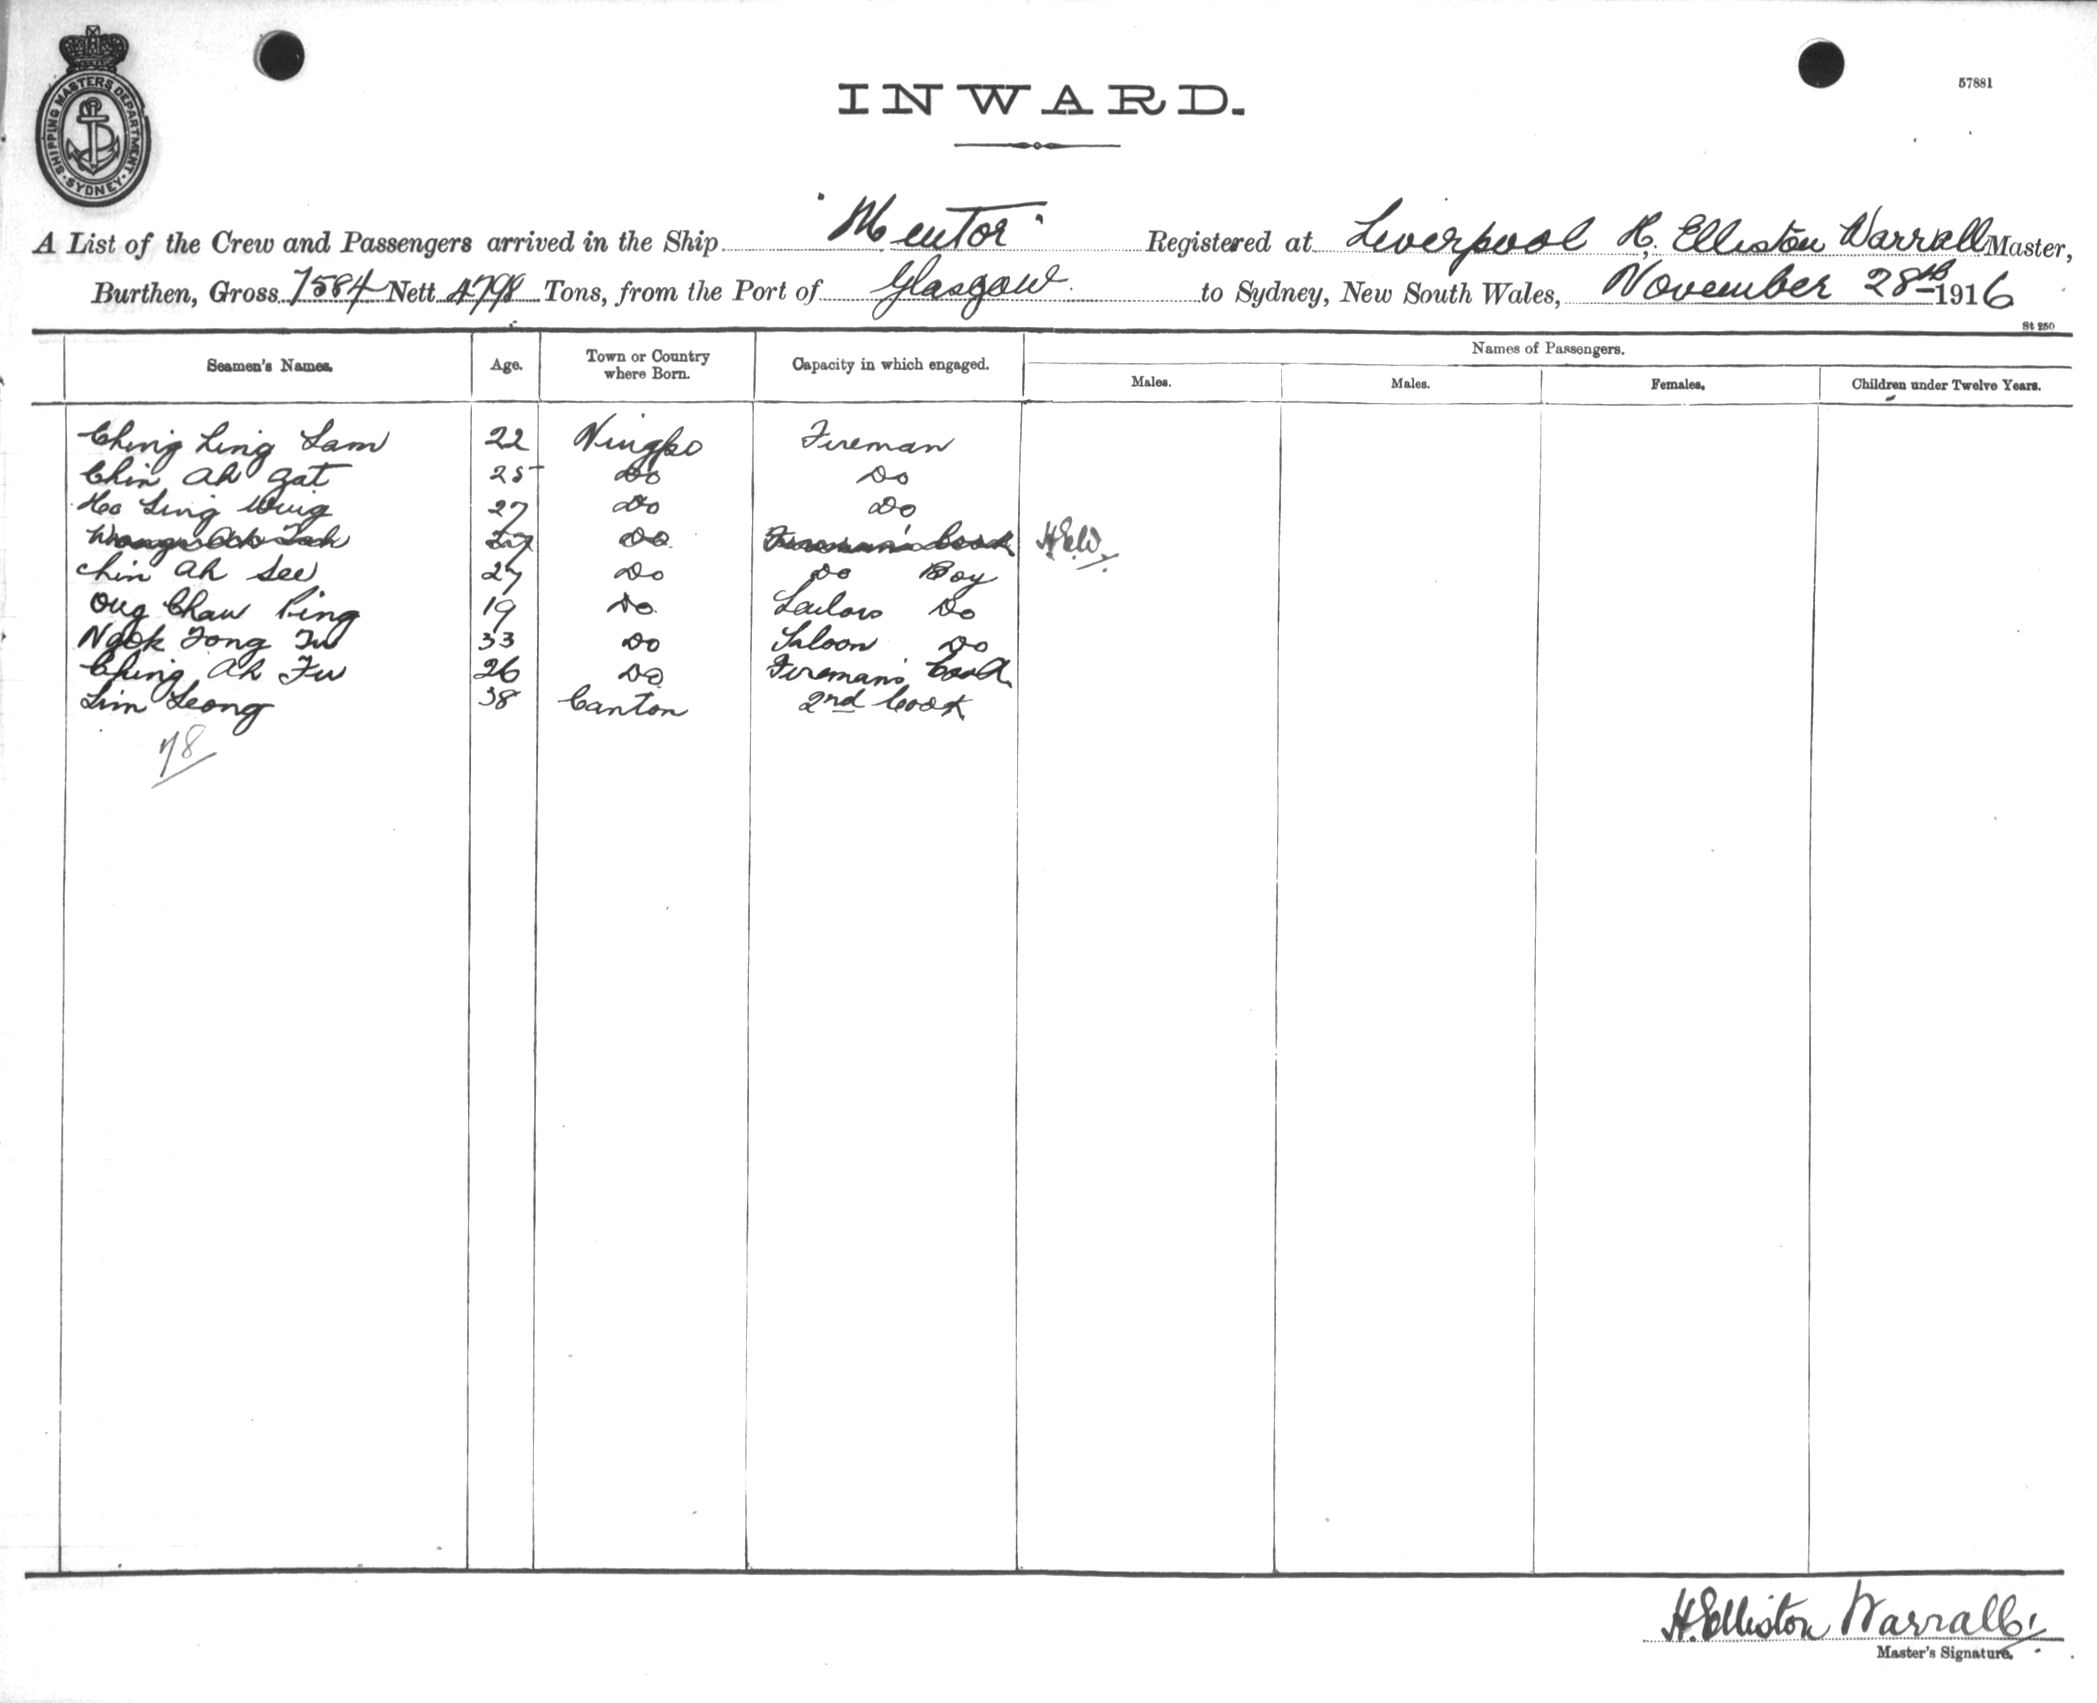 SHIPPING MASTERS DEPARTMENT
SYDNEY
INWARD.
57881
A List of the Crew and Passengers arrived in the Ship "Mentor" Registered at Liverpool H. Elliston Warrall Master,
Burthen, Gross 7584 Nett 4798 Tons, from the Port of Glasgow to Sydney, New South Wales, November 28th 1916
St 250
Seamen's Names. Age. Town or Country where Born. Capacity in which engaged. Names of Passengers.
Males. Males. Females. Children under Twelve Years.
Ching Ling Sam 22 Ningpo Fireman
Chin Ah Gat 25 Do Do
Ho Ling Wing 27 Do Do
Wong Ah Do Fireman's Cook H.E.W.
Chin Ah See 27 Do Do Boy
Ong Chaw Ping 19 Do Sailors Do
Ngok Tong Fu 33 Do Saloon Do
Ching Ah Fu 26 Do Fireman's Cook
Lim Leong 38 Canton 2nd Cook
78
H. Elliston Warrall
Master's Signature.